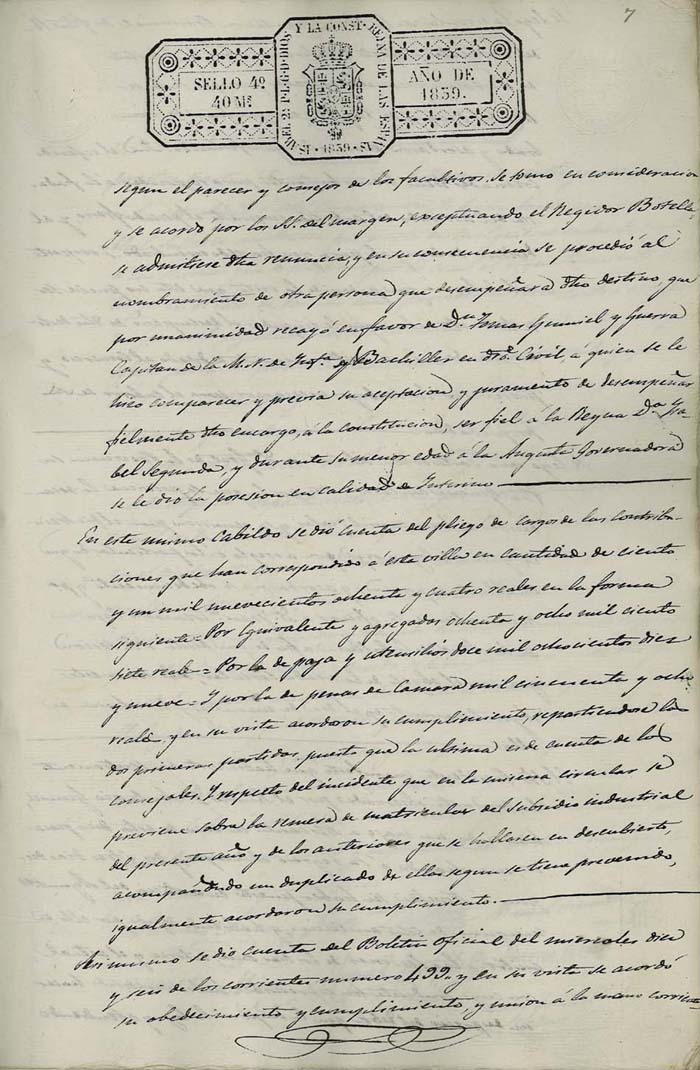 7
Y LA CONST. REYNA DE LAS ESPAÑAS
ISABEL 2ª P.L.G.D.DIOS
· 1839 ·
SELLO 4º
40 Ms
AÑO DE
1839.
segun el parecer y consejo de los facultivos. Se tomo en consideracion
y se acordó por los SS. del margen, exceptuando el Regidor Botella
se admitiese dha renuncia, y en su consecuencia se procedió al
nombramiento de otra persona que desempeñara dho destino, que
por unanimidad recayó en favor de Dn Tomas Gumiel y Guerra
Capitan de la M.N. de Infa y Bachiller en dro Civil á quien se le
hizo comparecer y previa su aceptacion y juramento de desempeñar
fielmente dho encargo, á la constitucion, ser fiel á la Reyna Da Ysa-
bel Segunda, y durante su menor edad á la Augusta Governadora
se le dio la posesion en calidad de Interino
En este mismo Cabildo se dió cuenta del pliego de cargos de las contribu-
ciones que han correspondido á esta villa en cantidad de ciento
y un mil nuevecientos ochenta y cuatro reales en la forma
siguiente = Por Equivalente y agregados ochenta y ocho mil ciento
siete reals = Por la de paja y utensilios doce mil ochocientos diez
y nueve = Y por la de penas de Camara mil cincuenta y ocho
reals, y en su vista acordaron su cumplimiento, repartiendose las
dos primeras partidas, puesto que la ultima es de cuenta de los
consejales. Y respecto del incidente que en la misma circular se
previene sobre la remesa de matriculas del subsidio industrial
del presente año y de los anteriores que se hallasen en descubierto,
acompañando un duplicado de ellas segun se tiene prevenido,
igualmente acordaron su cumplimiento.
Asi mismo se dio cuenta del Boletin oficial del miercoles diez
y seis de los corrientes numero 499. y en su vista se acordó
su obedecimiento y cumplimiento, y union á la mano corriente